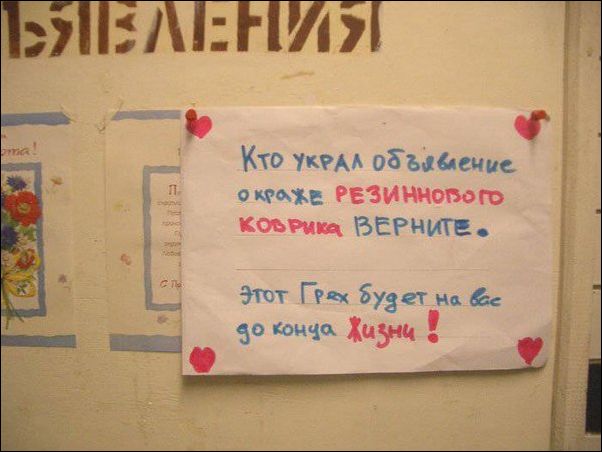 ЪЯВЛЕНИЯ
ота!
Кто украл объявление
о краже РЕЗИННОВОГО
КОВРИКА ВЕРНИТЕ.
Этот Грех будет на вас
до конца Жизни!